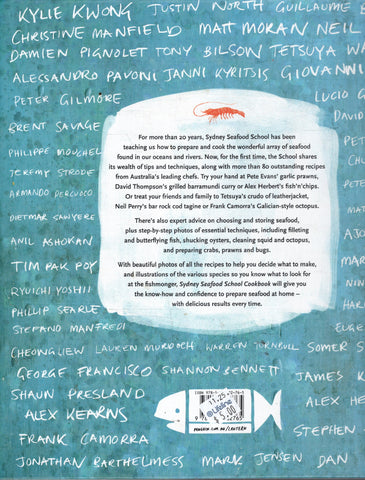 KYLIE KWONG JUSTIN NORTH GUILLAUME B
CHRISTINE MANFIELD MATT MORAN NEIL
DAMIEN PIGNOLET TONY BILSON TETSUYA WA
ALESSANDRO PAVONI JANNI KYRITSIS GIOVANNI
PETER GILMORE
LUCIO G
DAVID
BRENT SAVAGE
PHILIPPE MOUCHEL
JEREMY STRODE
ARMANDO PERCUOCO
DIETMAR SAWYERE
ANIL ASHOKAN
TIM PAK POY
RYUICHI YOSHII
PHILLIP SEARLE
STEFANO MANFREDI
For more than 20 years, Sydney Seafood School has been
teaching us how to prepare and cook the wonderful array of seafood
found in our oceans and rivers. Now, for the first time, the School shares
its wealth of tips and techniques, along with more than 80 outstanding recipes
from Australia's leading chefs. Try your hand at Pete Evans' garlic prawns,
David Thompson's grilled barramundi curry or Alex Herbert's fish'n'chips.
Or treat your friends and family to Tetsuya's crudo of leatherjacket,
Neil Perry's bar rock cod tagine or Frank Camorra's Galician-style octopus.
There's also expert advice on choosing and storing seafood,
plus step-by-step photos of essential techniques, including filleting
and butterflying fish, shucking oysters, cleaning squid and octopus,
and preparing crabs, prawns and bugs.
With beautiful photos of all the recipes to help you decide what to make,
and illustrations of the various species so you know what to look for
at the fishmonger, Sydney Seafood School Cookbook will give you
the know-how and confidence to prepare seafood at home –
with delicious results every time.
CHEONG LIEW LAUREN MURDOCH WARREN TURNBULL SOMER S
GEORGE FRANCISCO SHANNON BENNETT
JAMES K
SHAUN PRESLAND
ALEX HE
ALEX KEARNS
ISBN 978-1
11.25
Lifeline
PENGUIN.COM.AU/LANTERN
STEPHEN
FRANK CAMORRA
JONATHAN BARTHELMESS MARK JENSEN DAN